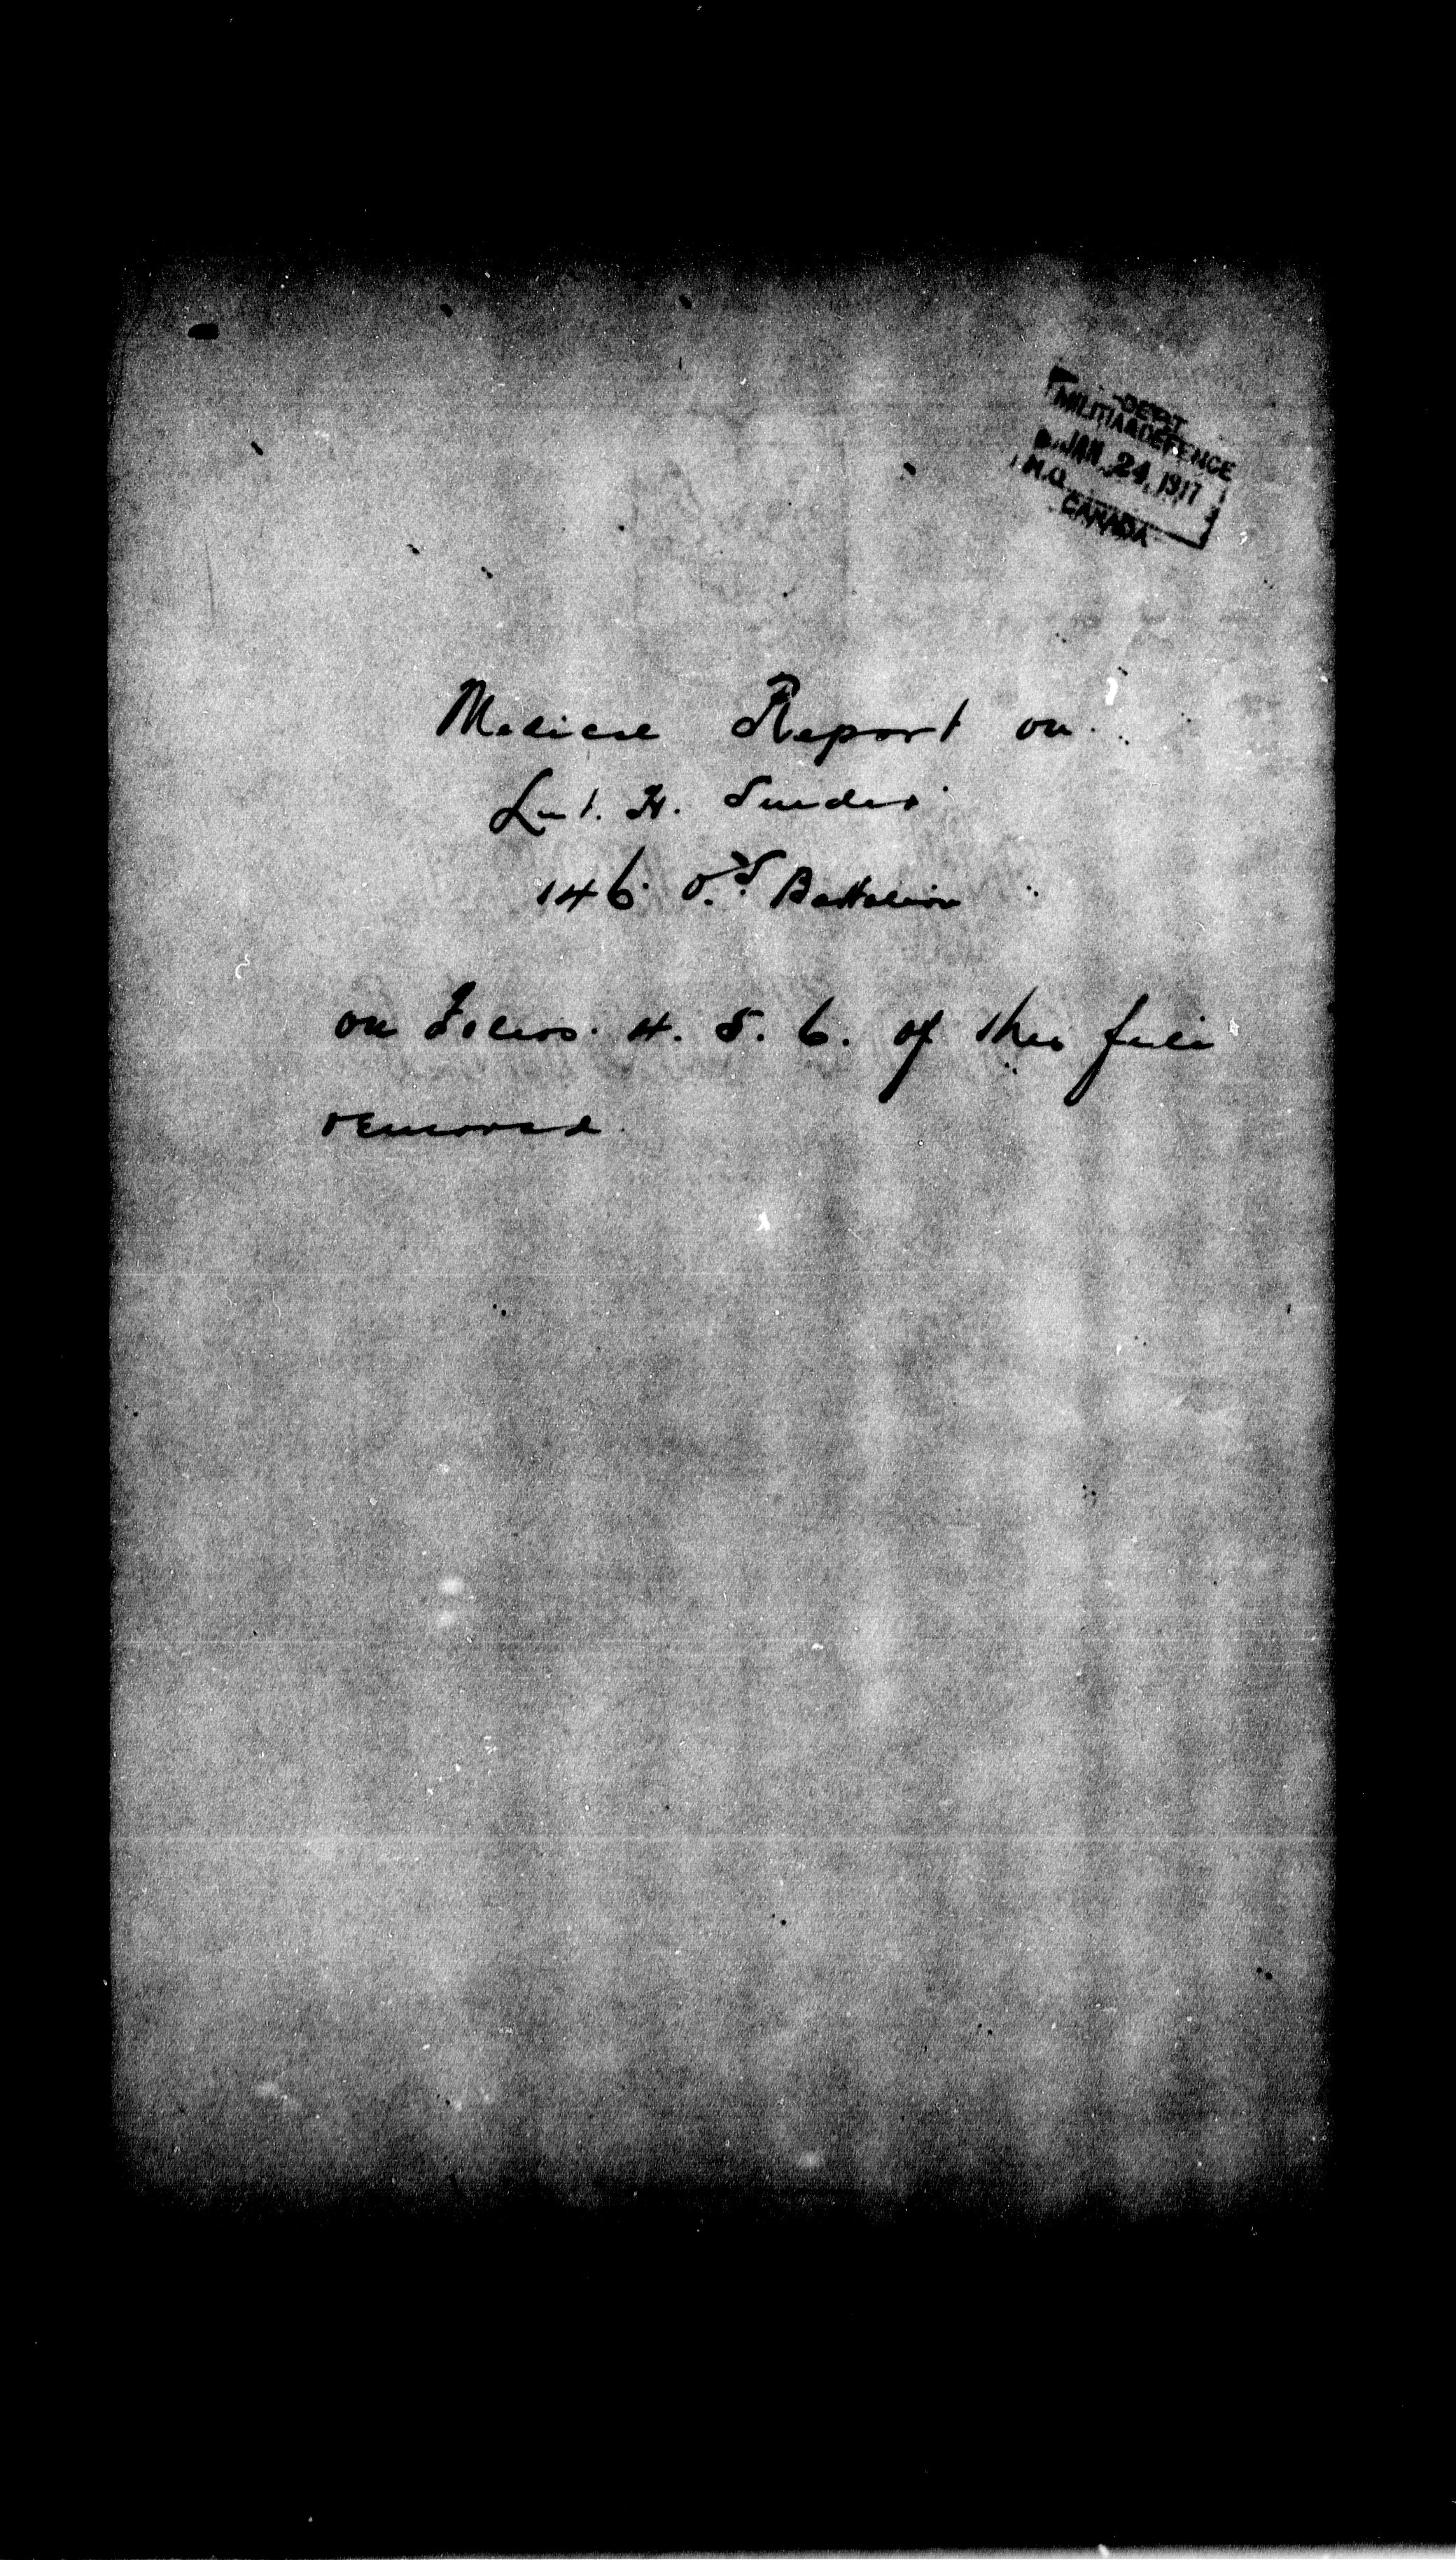 DEPT.
MILITIA & DEFENCE
JAN 24 1917
H.Q.
CANADA
Medical Report on
Lut. H.
146 O.S. Battalion
on Folios. 4. 5. 6. of this file
removed